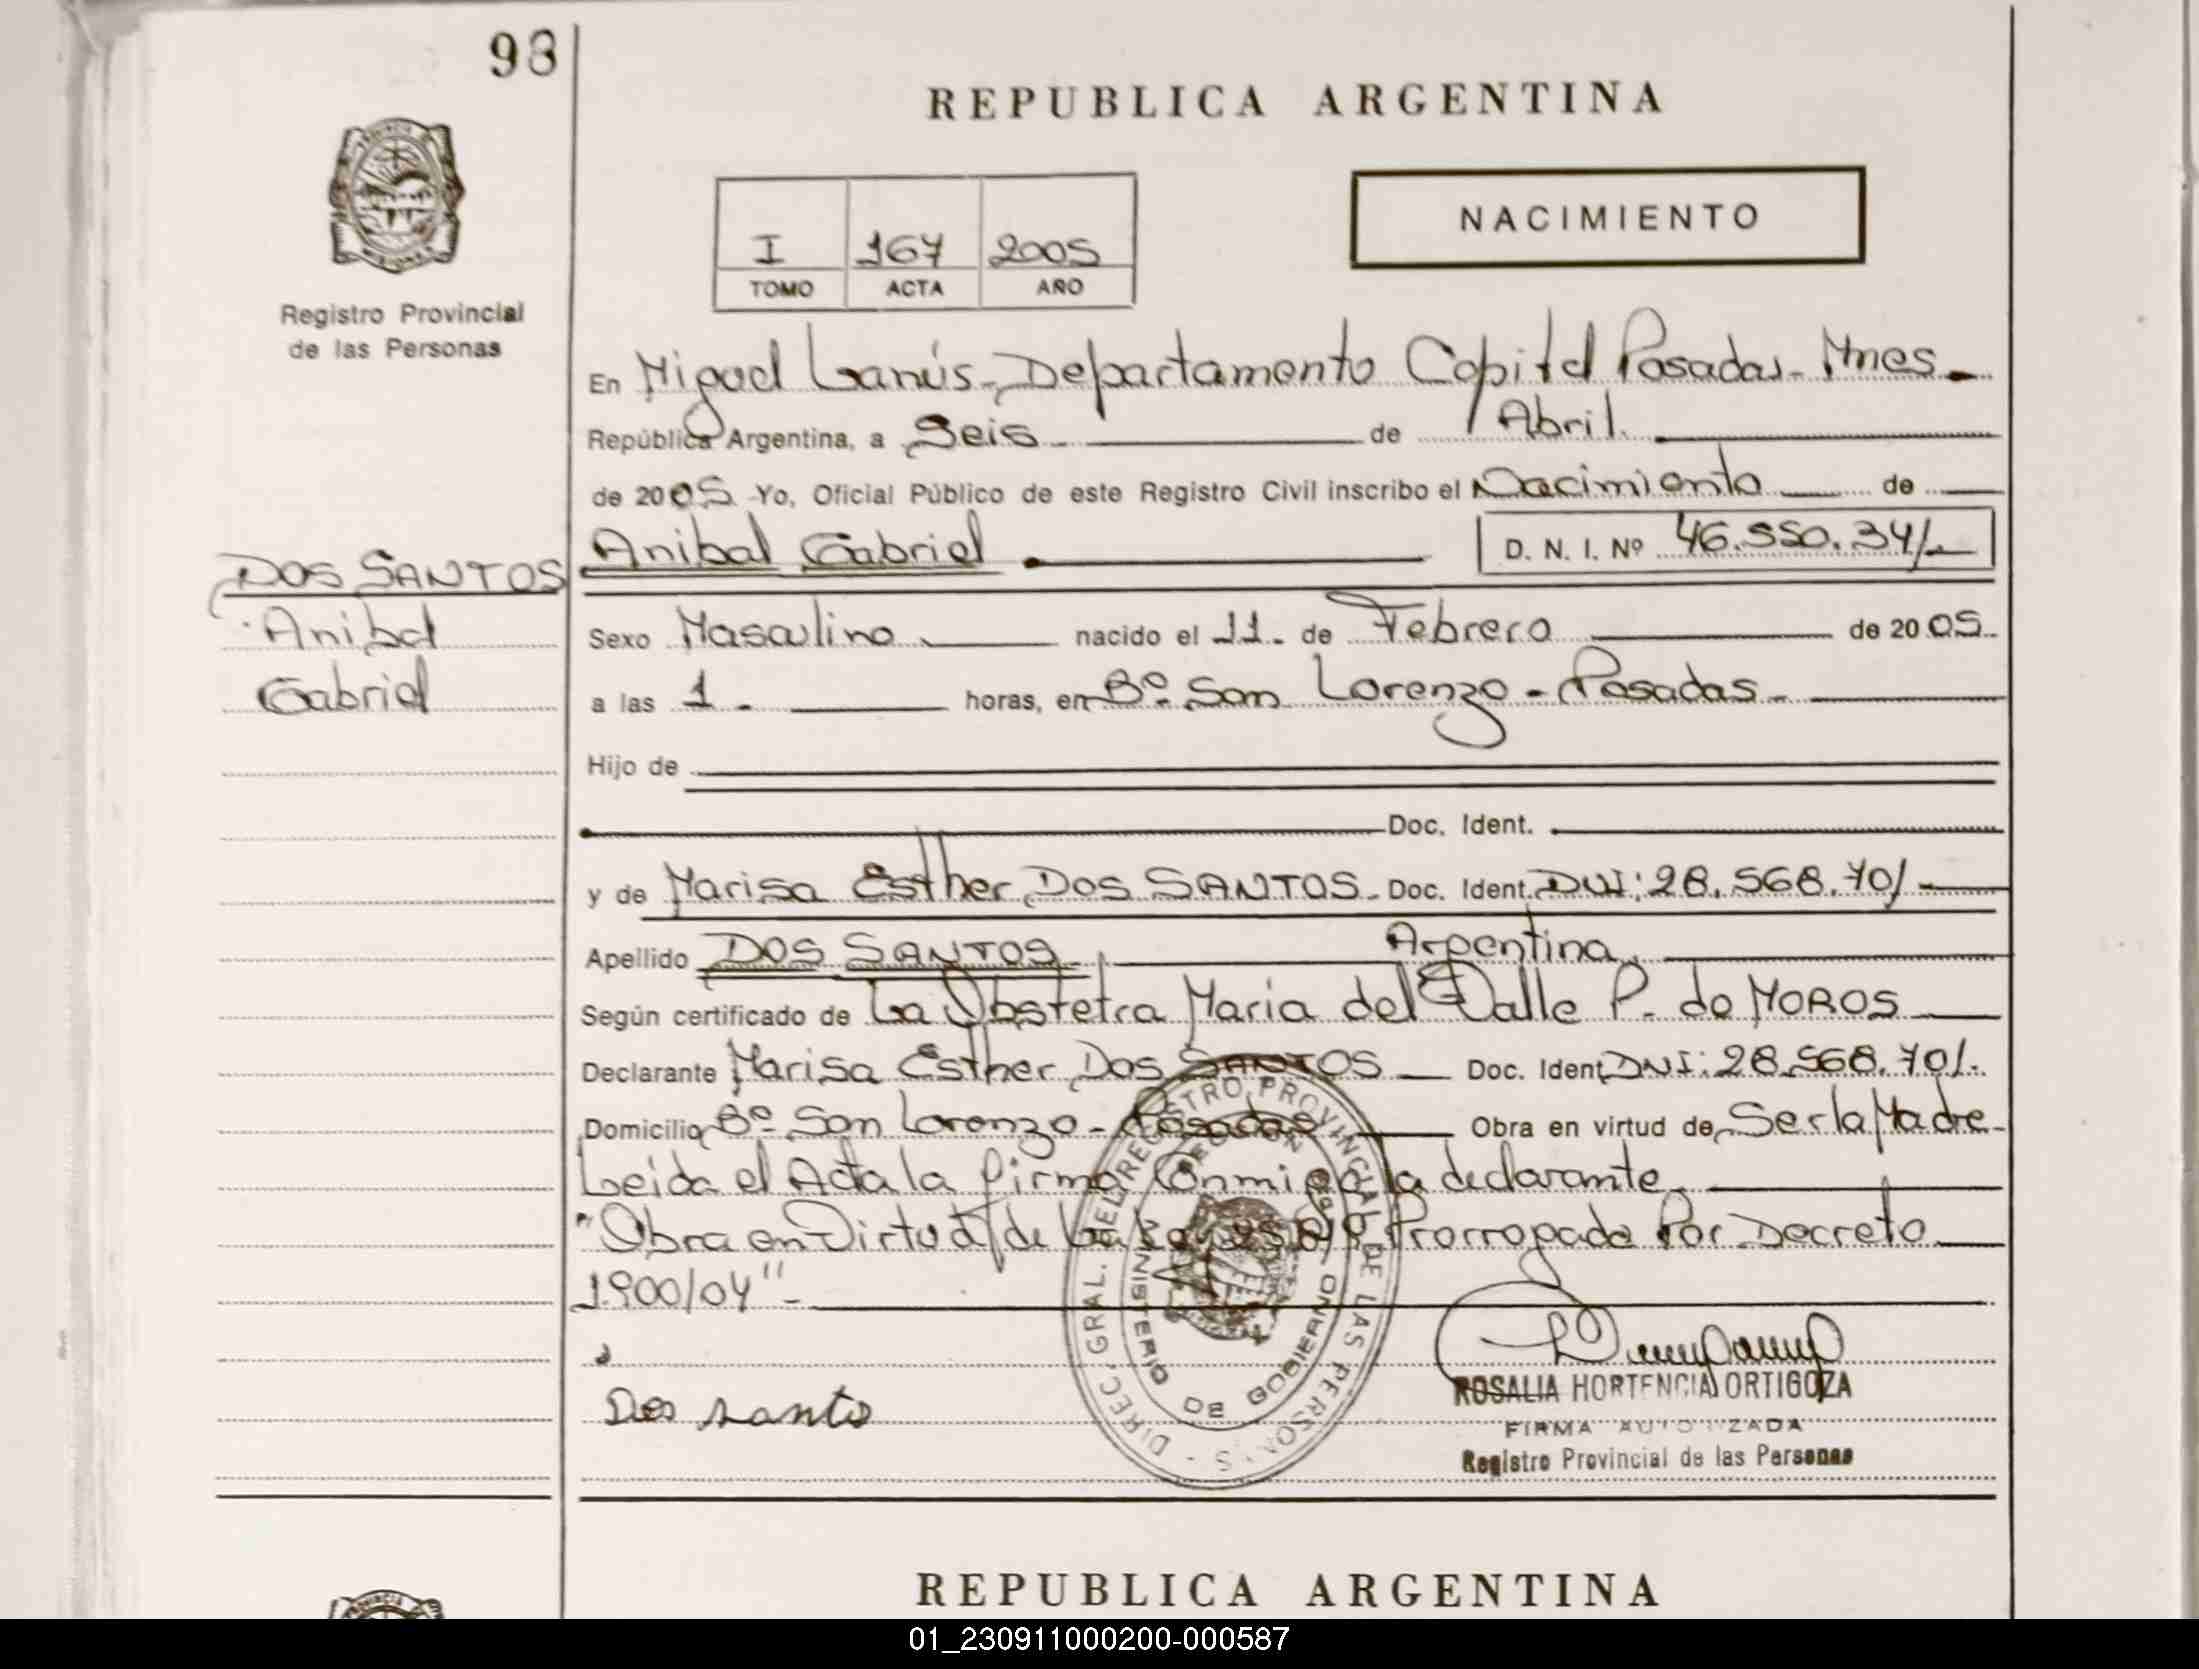 98
REPUBLICA ARGENTINA
NACIMIENTO
I 167 2005
TOMO ACTA AÑO
Registro Provincial
de las Personas
En Miguel Lanús - Departamento Capital Posadas - Mnes.
República Argentina, a Seis de Abril.
de 2005 Yo, Oficial Público de este Registro Civil inscribo el Nacimiento de
Anibal Gabriel D. N. I. Nº 46.550.34/
DOS SANTOS
Anibal
Gabriel
Sexo Masculino nacido el 11 - de Febrero de 2005
a las 1 - horas, en Bº San Lorenzo - Posadas -
Hijo de
Doc. Ident.
y de Marisa Esther DOS SANTOS - Doc. Ident. DNI: 28.568.70/
Apellido DOS SANTOS Argentina
Según certificado de La Obstetra Maria del Valle P. de MOROS
Declarante Marisa Esther Dos SANTOS Doc. Ident DNI: 28.568.70/.
Domicilio Bº San Lorenzo - Posadas Obra en virtud de Ser la Madre -
Leida el Acta la firma Conmigo la declarante
"Obra en Virtud de La Ley Prorrogada Por Decreto
1.900/04" -
Dos santo
DIREC. GRAL. DEL REGISTRO PROVINCIAL DE LAS PERSONAS
MINISTERIO DE GOBIERNO
ROSALIA HORTENCIA ORTIGOZA
FIRMA AUTORIZADA
Registro Provincial de las Personas
REPUBLICA ARGENTINA
01_230911000200-000587